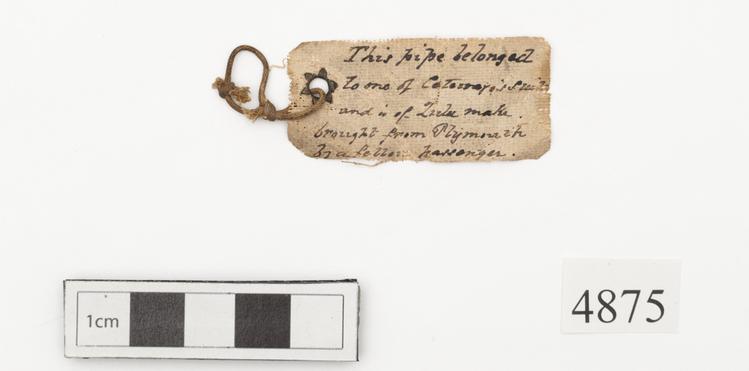 This pipe belonged
to one of Cetewayo's suite
and is of Zulu make.
brought from Plymouth
by a fellow passenger.
1cm
4875